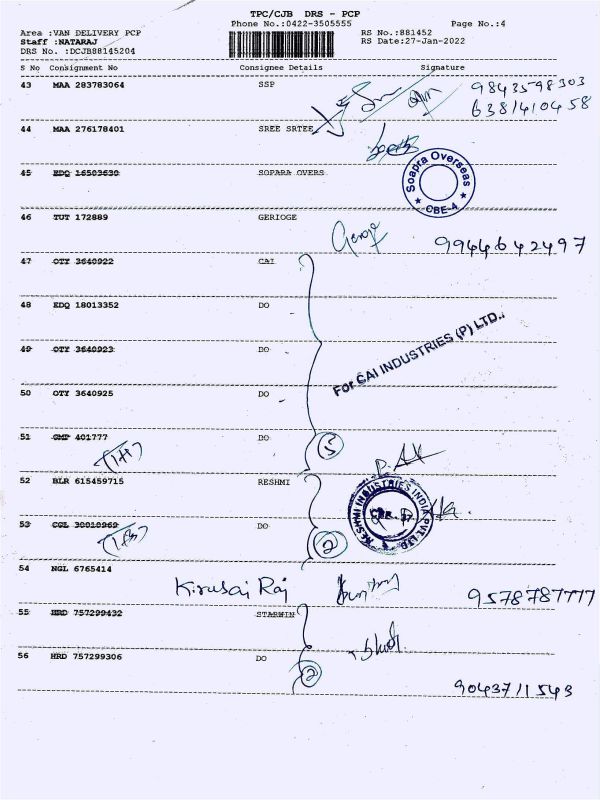 TPC/CJB DRS - PCP
Phone No.:0422-3505555 Page No.:4
Area :VAN DELIVERY PCP RS No.:881452
Staff :NATARAJ RS Date:27-Jan-2022
DRS No. :DCJB88145204
S No Consignment No Consignee Details Signature
43 MAA 283783064 SSP 9843598303
6381410458
44 MAA 276178401 SREE SRTEE
45 EDQ 16503630 SOPARA OVERS
Soapra Overseas
CBE-4
46 TUT 172889 GERIOGE
George 9944642497
47 OTY 3640922 CAI
48 EDQ 18013352 DO
For CAI INDUSTRIES (P) LTD.,
49 OTY 3640923 DO
50 OTY 3640925 DO
51 GMP 401777 DO
(1+1) 5
52 BLR 615459715 RESHMI
RESHMI INDUSTRIES INDIA PVT. LTD
53 CGL 30010969 DO
2
54 NGL 6765414
Kirusai Raj 9578787777
55 HRD 757299432 STARWIN
56 HRD 757299306 DO
2
9043711543